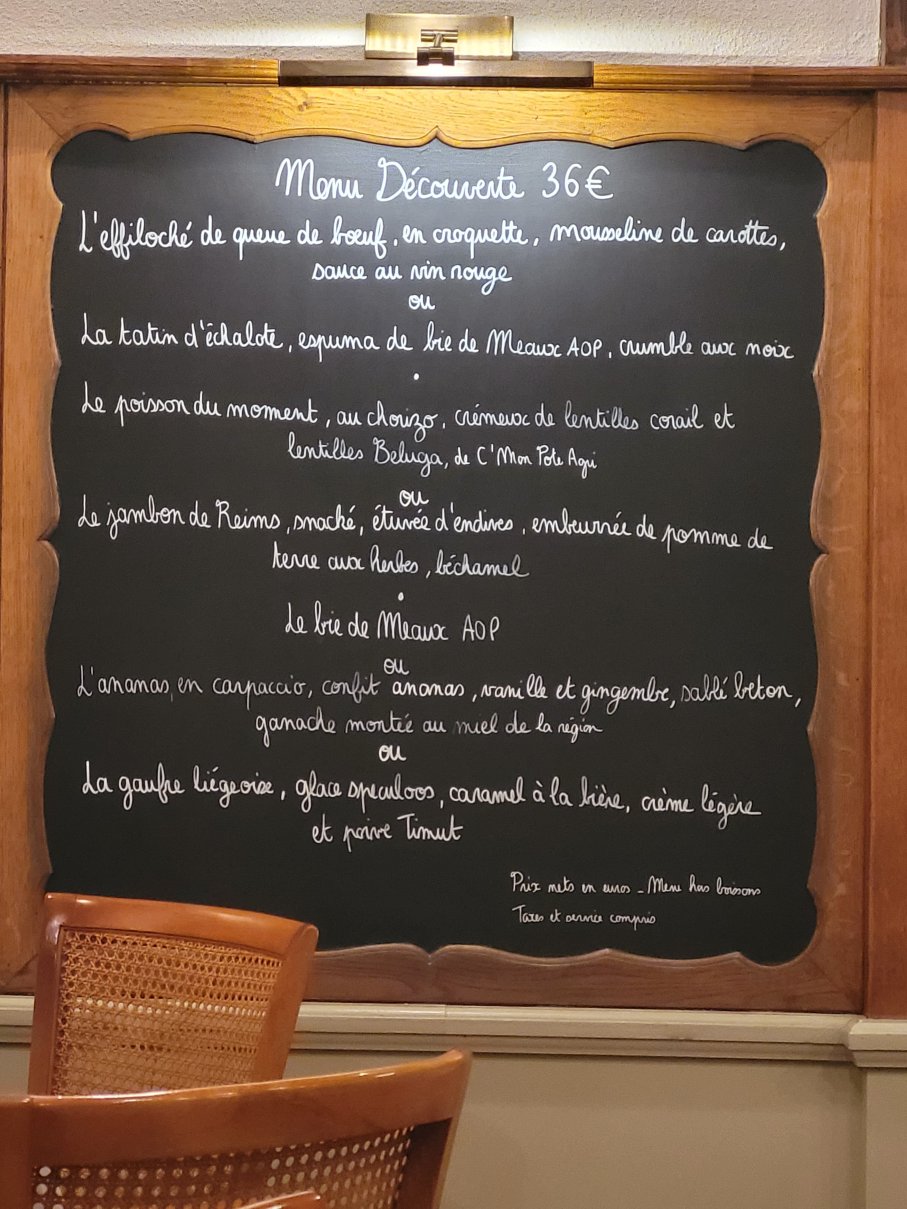 Menu Découverte 36€
L'effiloché de queue de bœuf, en croquette, mousseline de carottes,
sauce au vin rouge
ou
La tatin d'échalote, espuma de brie de Meaux AOP, crumble aux noix
.
Le poisson du moment, au chorizo, crémeux de lentilles corail et
lentilles Beluga, de C'Mon Pote Agri
ou
Le jambon de Reims, snaché, étuvée d'endives, embeurrée de pomme de
terre aux herbes, béchamel
.
Le brie de Meaux AOP
ou
L'ananas, en carpaccio, confit ananas, vanille et gingembre, sablé breton,
ganache montée au miel de la région
ou
La gaufre liégeoise, glace speculoos, caramel à la bière, crème légère
et poivre Timut
Prix nets en euros - Menu hors boissons
Taxes et service compris